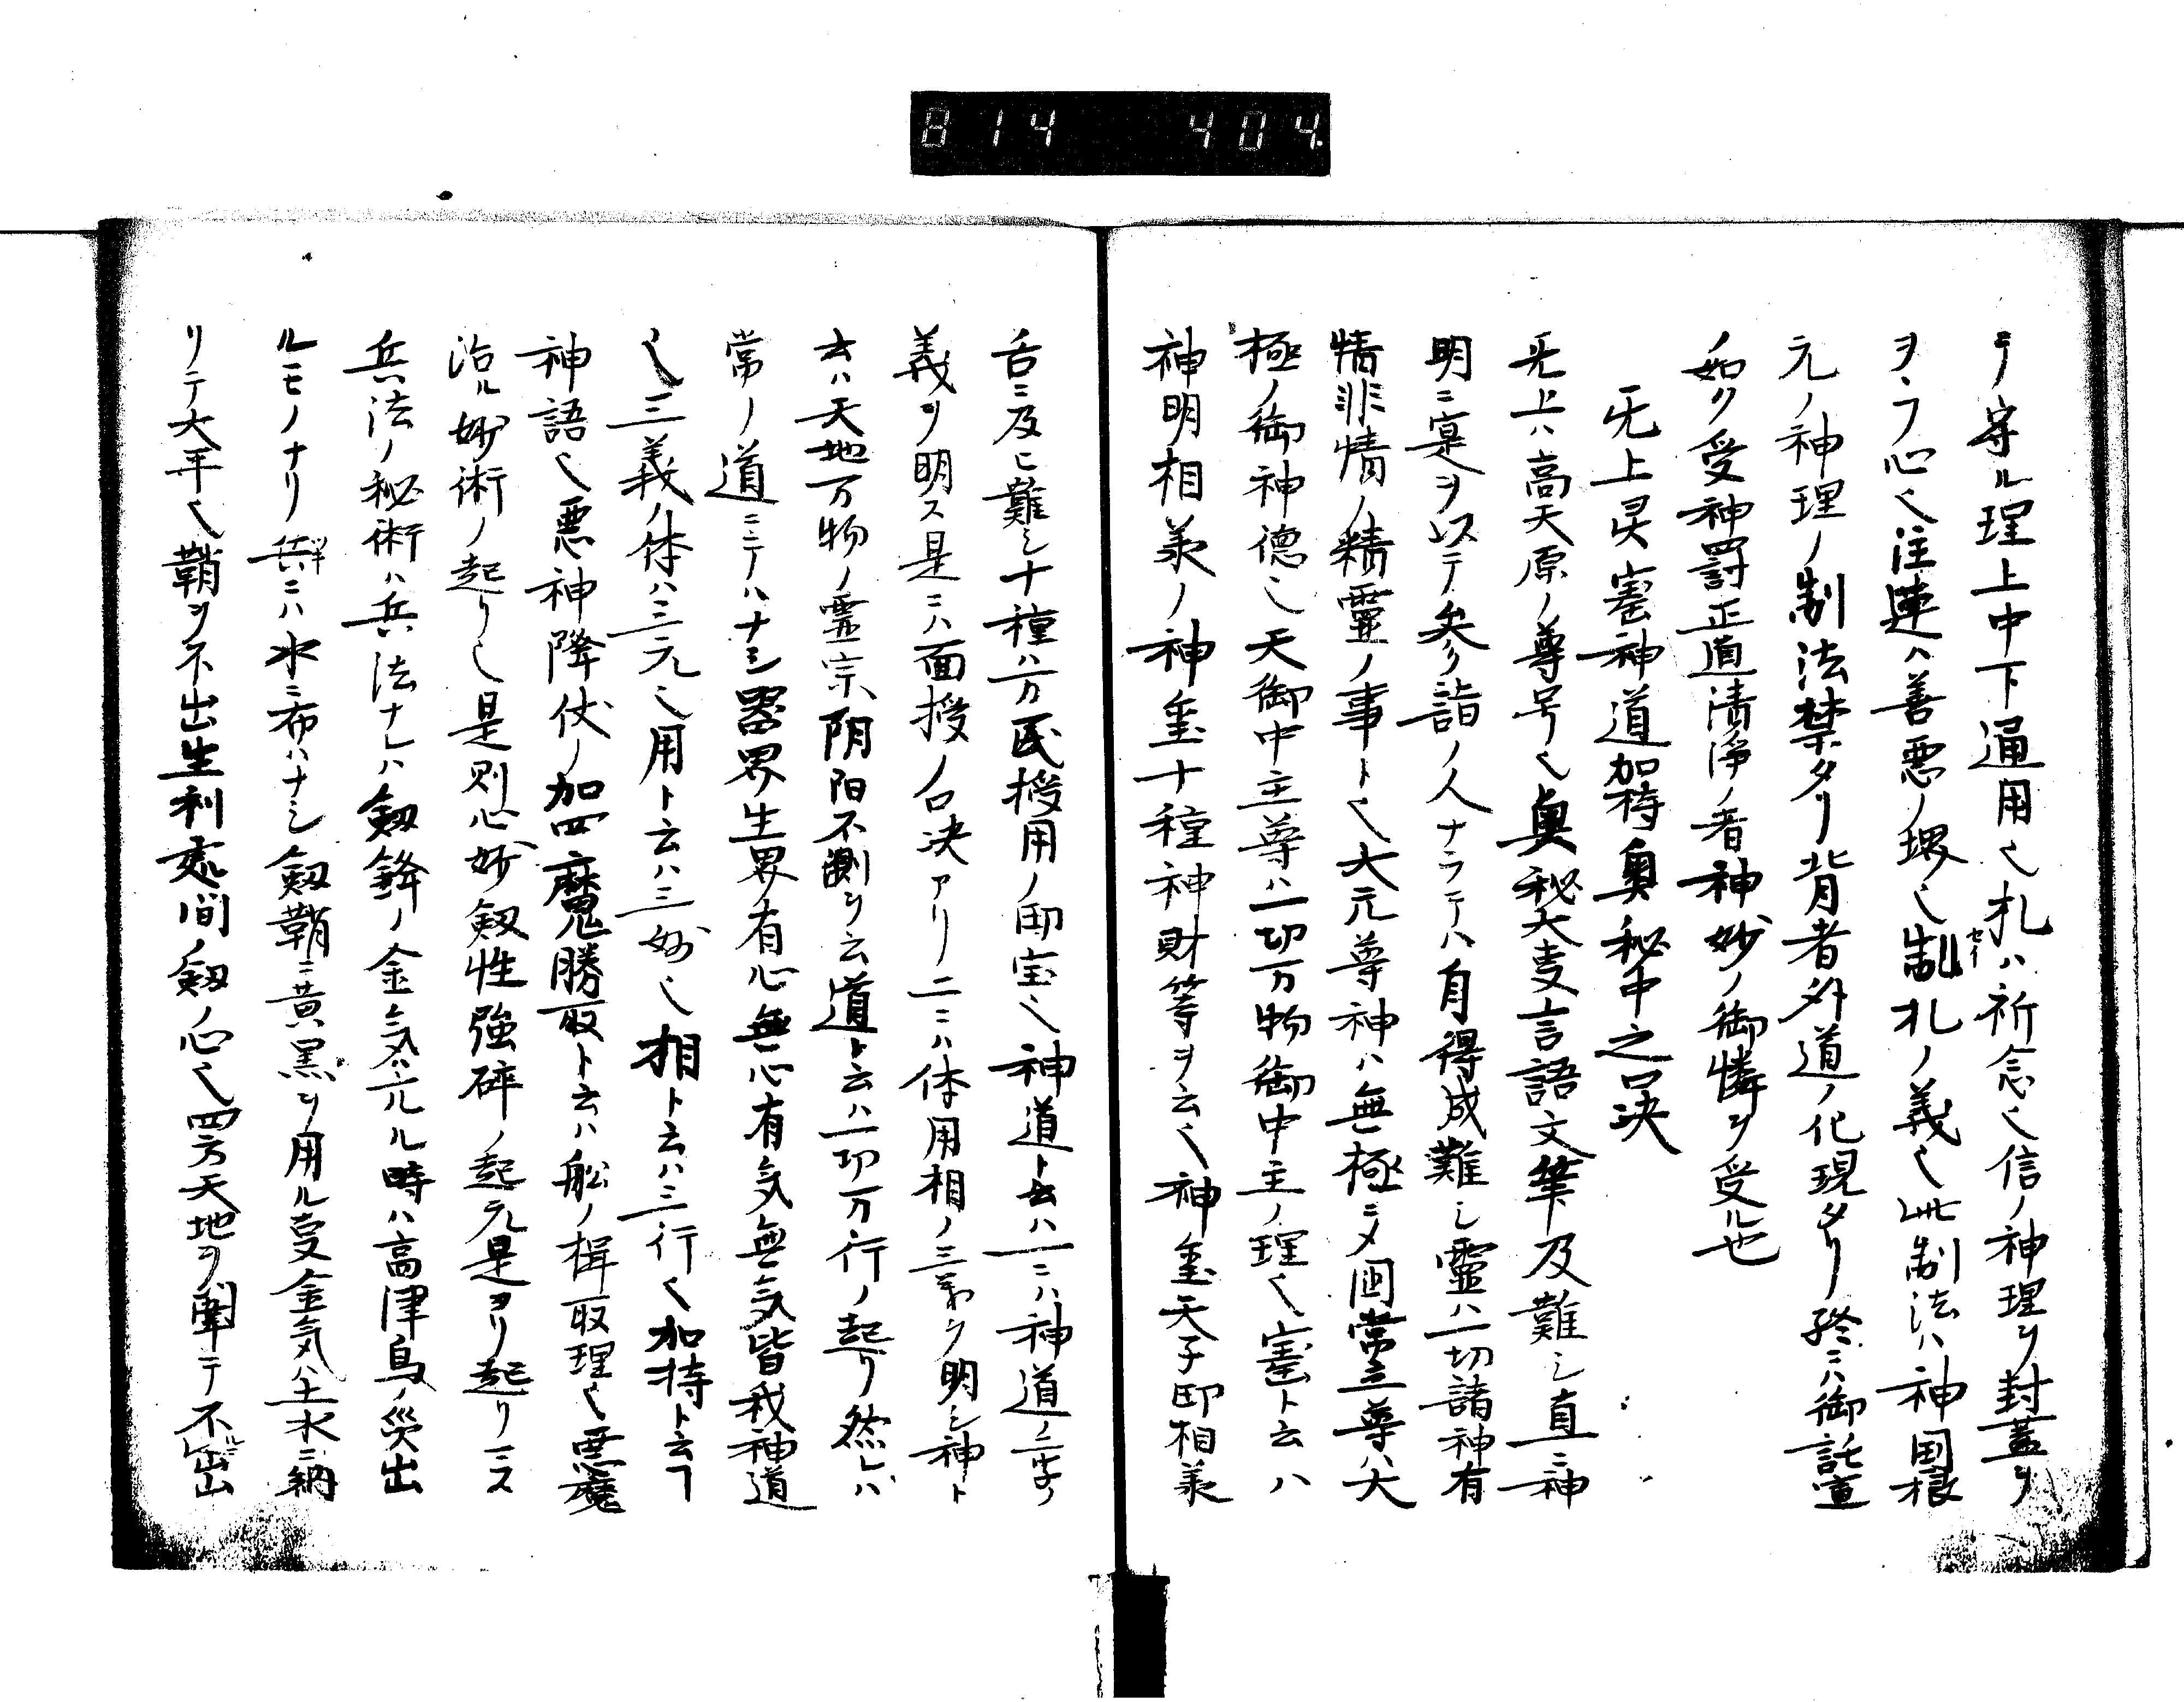 814 404.
テ守ル理上中下通用也札ハ祈念也信ノ神理ヲ封蓋ヲ
ヲヽフ心也注連ハ善悪ノ堺也制札ノ義也此制法ハ神国根
元ノ神理ノ制法禁タリ背者外道ノ化現タリ終ニハ御託宣
如ク受神罰正道清浄ノ者神妙ノ御憐ヲ受ル也
无上灵宝神道加持奥秘中之口决
无上ハ高天原ノ尊号也奥秘大事言語文筆及難シ直ニ神
明ニ寔ヲ以テ参詣ノ人ナラテハ自得成難シ霊ハ一切諸神有
情非情ノ精霊ノ事ト也大元尊神ハ無極ニメ国常立尊ハ大
極ノ御神徳也天御中主尊ハ一切万物御中主ノ理也宝ト云ハ
神明相承ノ神璽十種神財等ヲ云也神璽天子印相承
舌ニ及ヒ難シ十種ハ万民授用ノ印宝也神道ト云ハ一ニハ神道ノ二字ノ
義ヲ明ス是ニハ面授ノ口决アリ二ニハ体用相ノ三義ヲ明シ神ト
云ハ天地万物ノ霊宗陰阳不測ヲ云道ト云ハ一切万行ノ起リ然レハ
常ノ道ニテハナシ器界生界有心無心有気無気皆我神道
也三義ノ体ハ三元也用ト云ハ三妙也相ト云ハ三行也加持ト云フ
神語也悪神降伏ノ加四魔勝取ト云ハ船ノ楫取理也悪魔
治ル妙術ノ起リ也是則心妙剱性強砕ノ起元是ヨリ起リニス
兵法ノ秘術ハ兵法ナレハ剱鋒ノ金気亢ル時ハ高津鳥ノ災出
ルモノナリ兵ニハ水ニ布ハナシ剱鞘ニ黄黒ヲ用ル事金気ハ土水ニ納
リテ大平也鞘ヲ不出生利処間ノ剱ノ心也四方天地ヲ閉テ不出